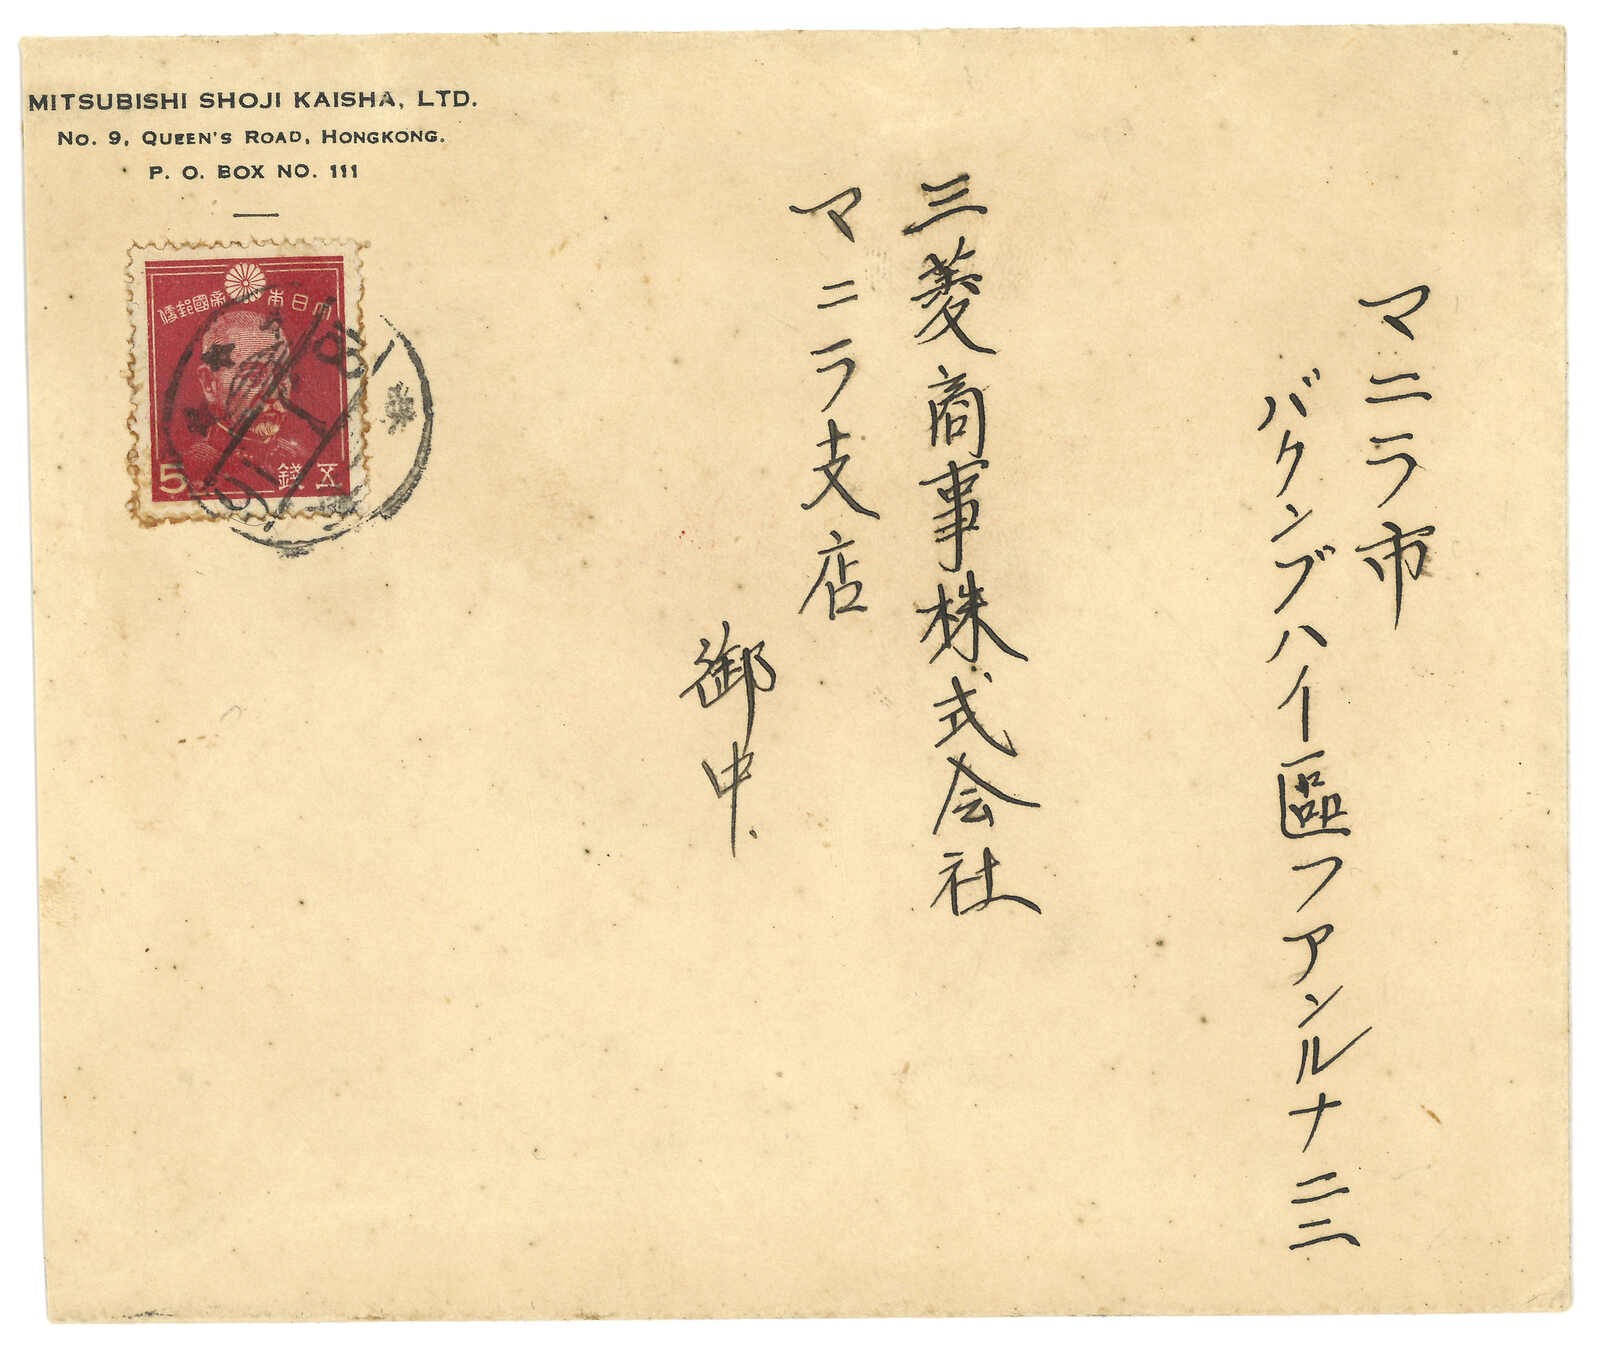 MITSUBISHI SHOJI KAISHA, LTD.
No. 9, QUEEN'S ROAD, HONGKONG.
P. O. BOX NO. 111
大日本帝國郵便
5 五錢
マニラ市
バクンブハイ區フアンルナ二二
三菱商事株式会社
マニラ支店
御中.